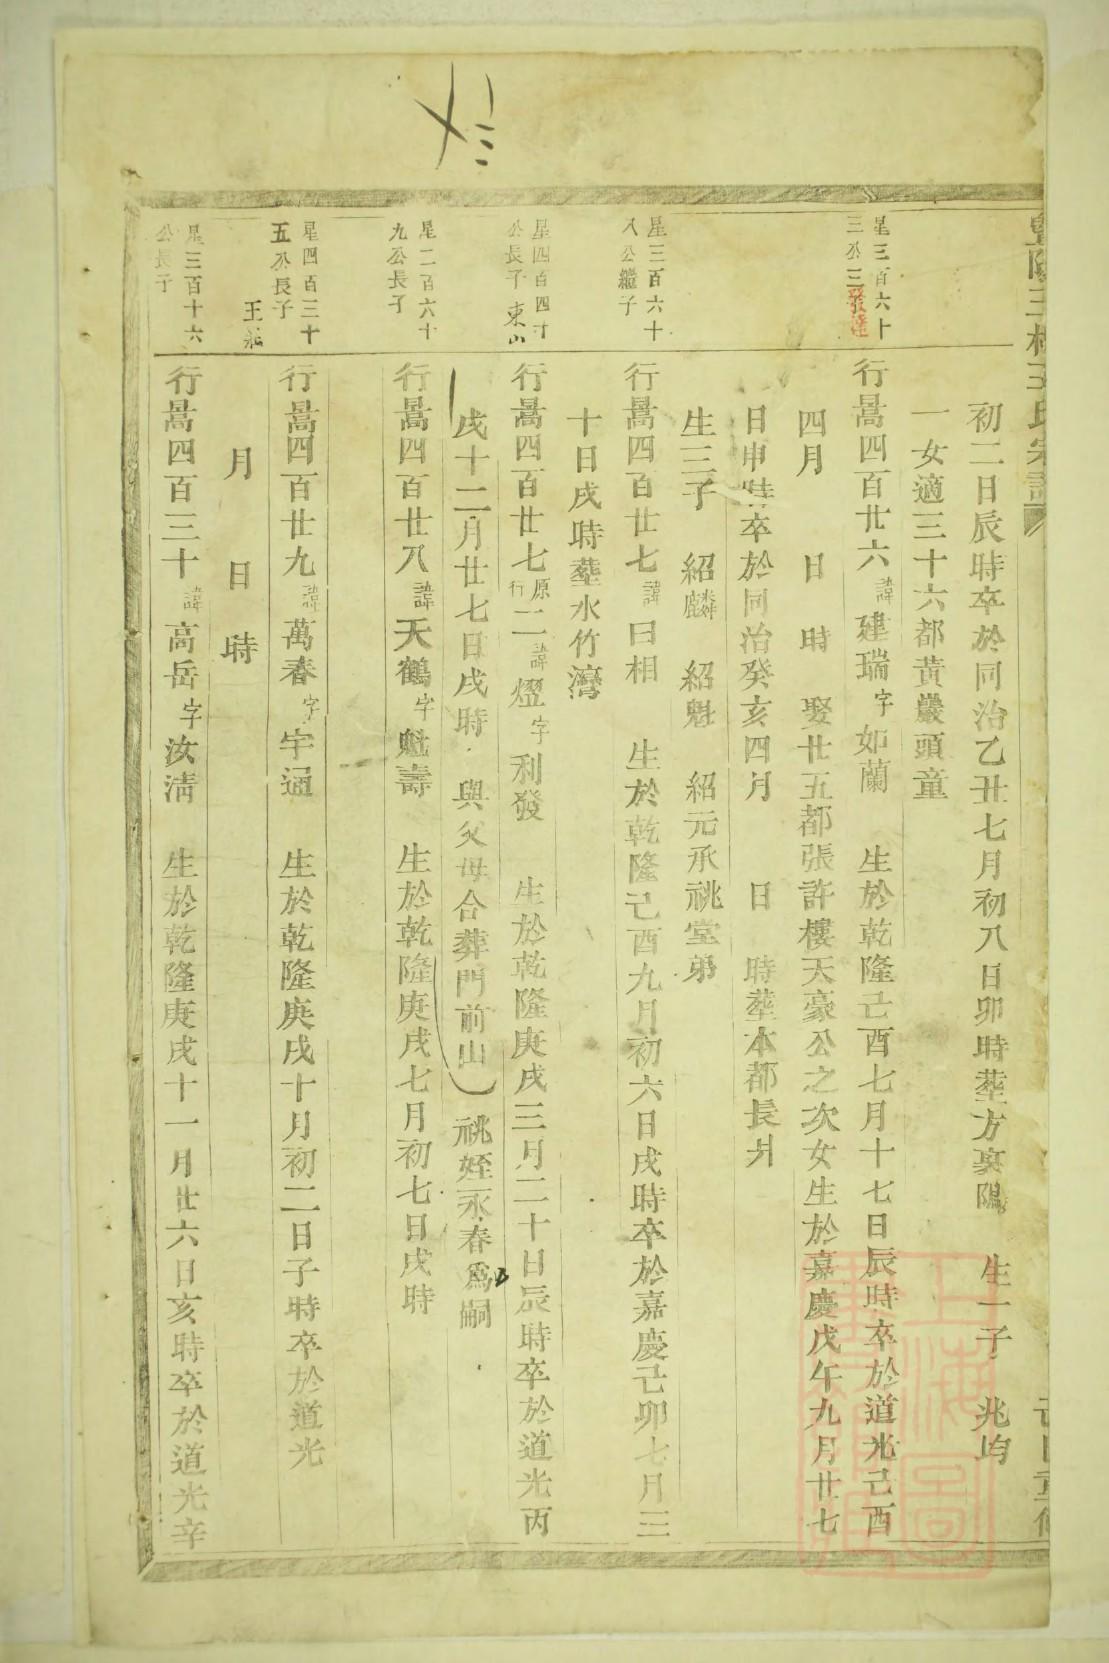 初二日辰時卒於同治乙丑七月初八日卯時塟方裏隝 生一子 兆均
一女適三十六都黃巖頭童
星三百六十
三公三
發達
行暠四百廿六諱建瑞字如蘭 生於乾隆己酉七月十七日辰時卒於道光己酉
四月 日 時 娶廿五都張許樓天豪公之次女生於嘉慶戊午九月廿七
日申時卒於同治癸亥四月 日 時塟本都長爿
生三子 紹麟 紹魁 紹元承祧堂弟
星三百六十
八公繼子
行暠四百廿七諱曰相 生於乾隆己酉九月初六日戌時卒於嘉慶己卯七月三
十日戌時塟水竹灣
星四百四十
公長子 東山
行暠四百廿七原行二諱熤字利發 生於乾隆庚戌三月二十日辰時卒於道光丙
戌十二月廿七日戌時 與父母合葬門前山 祧姪永春爲嗣
星二百六十
九公長子
行暠四百廿八諱天鶴字魁壽 生於乾隆庚戌七月初七日戌時
星四百三十
五公長子
行暠四百廿九諱萬春字宇通 生於乾隆庚戌十月初二日子時卒於道光
月 日 時
星三百十六
公長子
行暠四百三十諱高岳字汝淸 生於乾隆庚戌十一月廿六日亥時卒於道光辛